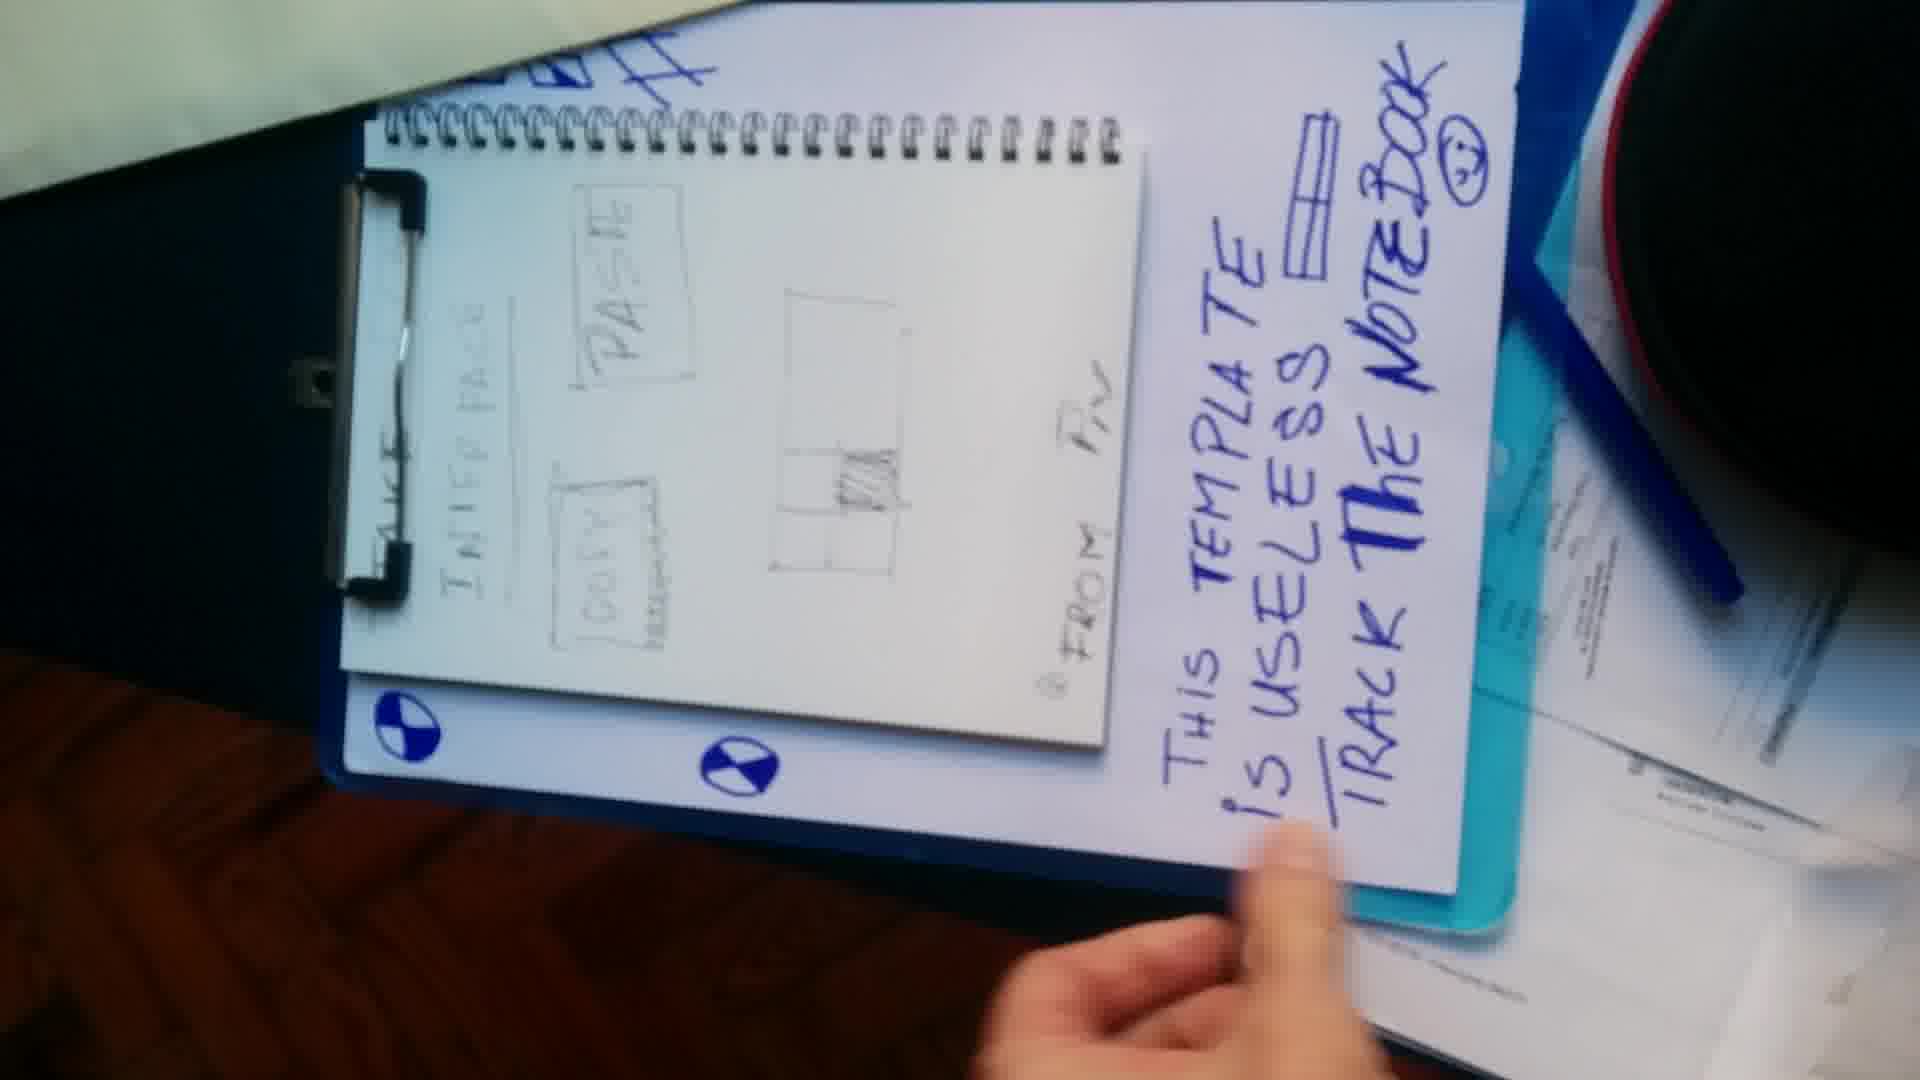 FAKE
INTERFACE
COPY
PASTE
@ FROM PIV
THIS TEMPLATE
iS USELESS
TRACK ThE NOTEBOOK